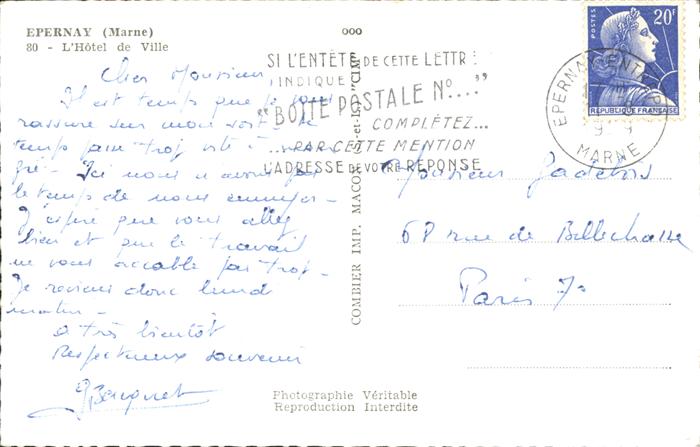 EPERNAY (Marne)
80 - L'Hôtel de Ville
000
SI L'ENTÊTE DE CETTE LETTRE
INDIQUE
"BOITE POSTALE No...."
COMPLÉTEZ...
...PAR CETTE MENTION
L'ADRESSE DE VOTRE RÉPONSE
EPERNAY CENTRAL
MARNE
POSTES
20F
REPUBLIQUE FRANÇAISE
Cher Monsieur,
Il est temps que je vous
rassure sur mon sort - Le
temps passe trop vite à
gré - Ici nous n'avons pas
le temps de nous ennuyer -
J'espère que vous allez
bien et que le travail
ne vous accable pas trop -
Je reviens donc lundi
matin -
A très bientôt
Respectueux souvenir
COMBIER IMP. MACON
"CIM"
Monsieur
68 rue de Bellechasse
Paris 7e
Photographie Véritable
Reproduction Interdite